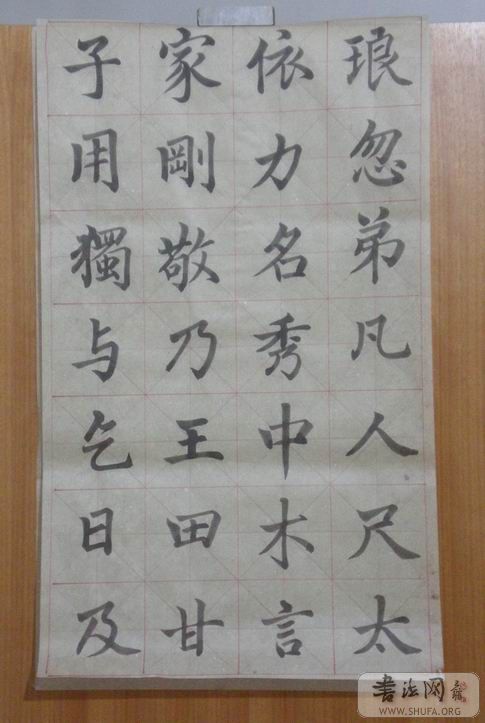 琅忽弟凡人尺太
依力名秀中木言
家剛敬乃王田甘
子用獨与乞日及
書法网
WWW.SHUFA.ORG